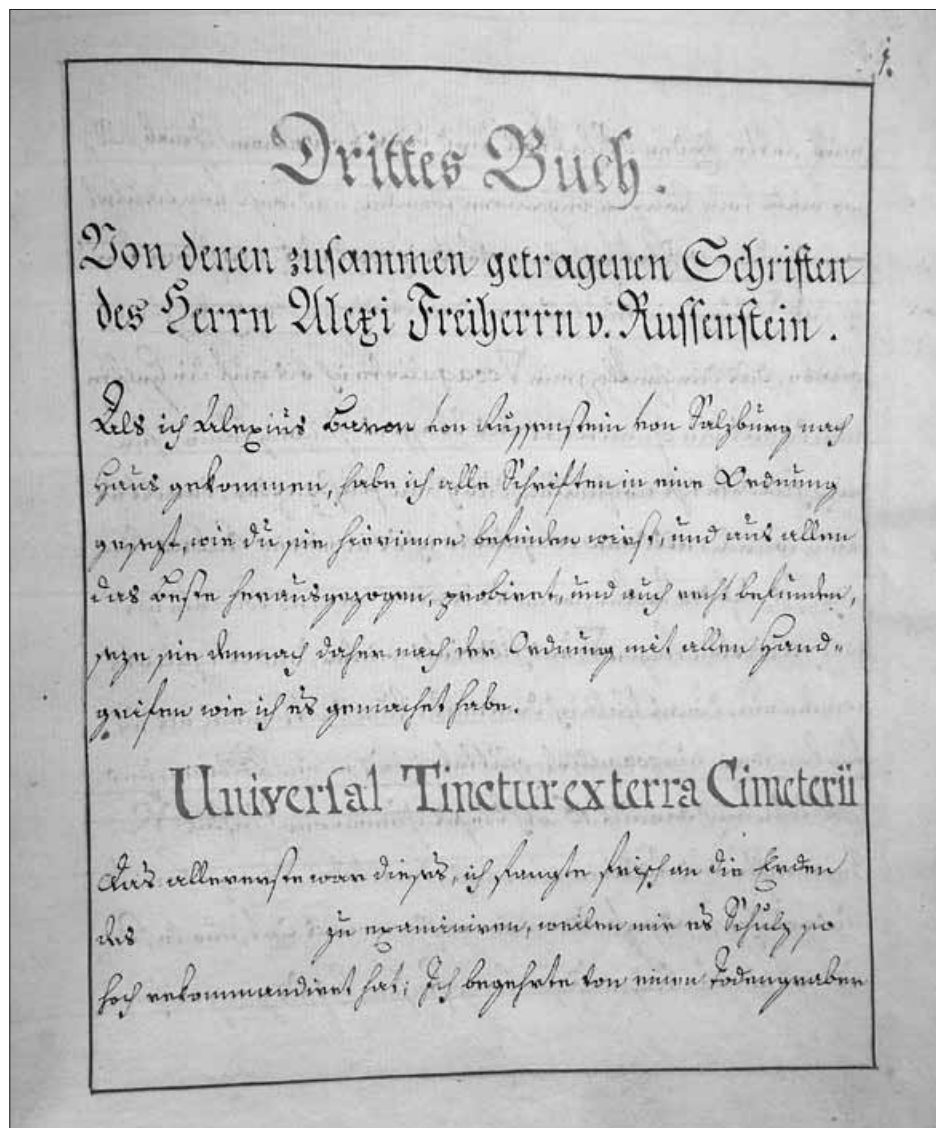 1.
Drittes Buch.
Von denen zusammen getragenen Schriften
des Herrn Alexi Freiherrn v. Russenstein.
Als ich Alexius Baron von Russenstein von Salzburg nach
Haus gekommen, habe ich alle Schriften in eine Ordnung
gesezt, wie du sie hierinnen befinden wirst, und aus allen
das Beste herausgezogen, probiret, und auch recht befunden,
seze sie demnach daher nach der Ordnung mit allen Hand-
grifen wie ich es gemachet habe.
Universal Tinctur ex terra Cimeterii
Das allererste war dieses, ich fangte frisch an die Erden
des zu examiniren, weilen mir es Schulz so
hoch rekommandiret hat; Ich begehrte von einen Todengraber